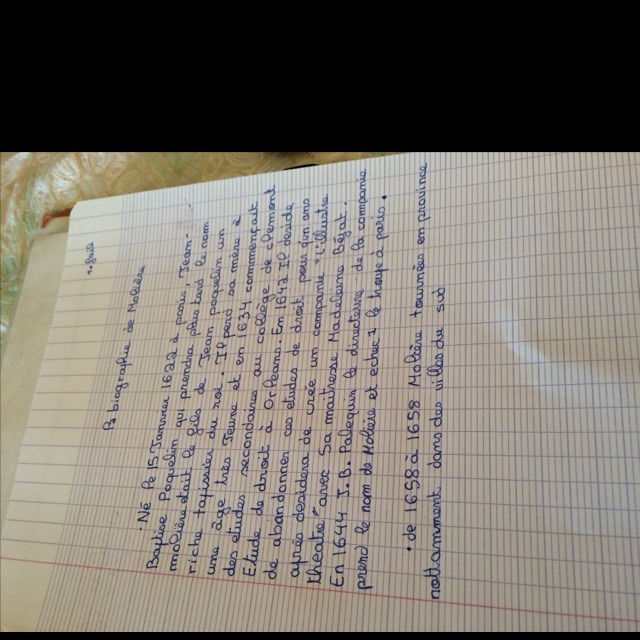 la biographie de Molière
Né le 15 Janvier 1622 à paris, Jean-
Baptise Poquelin qui prendra plus tard le nom
molière était le fils de Jean poquelin un
riche tapissier du roi. Il perd sa mère à
une âge très Jeune et en 1634 commençait
des etudes secondaires au collège de clermont
Etude de droit à Orleans. En 1642 Il deside
de abandonner ces etudes de droit pour
après desidera de créé un compagnie "l'illustre
théatre" avec Sa maitresse Madeleine Béjat.
En 1644 J.B. Polequin le directeur de la compagnie
prend le nom de Molière et echec à paris.
• de 1658 à 1658 Molière tournées en province
nottamment dans des villes du sud